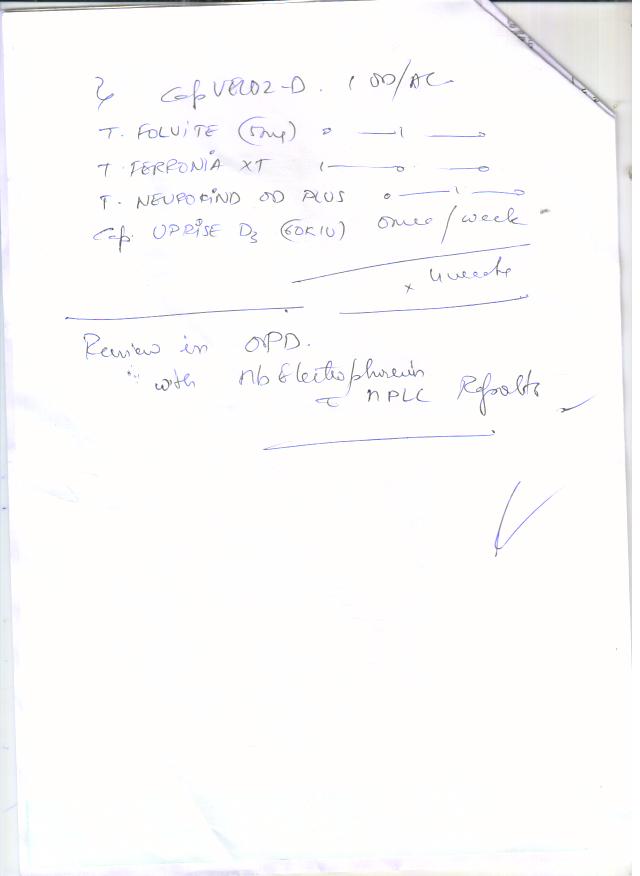 Cap VELOZ-D. 1 OD/AC
T. FOLVITE (5mg) 0—1—0
T. FERRONIA XT 1—0—0
T. NEUROKIND OD PLUS 0—1—0
Cap. UPRISE D3 (60K IU) once/week
x 4 weeks
Review in OPD.
with Hb Electrophoresis
c HPLC Reports